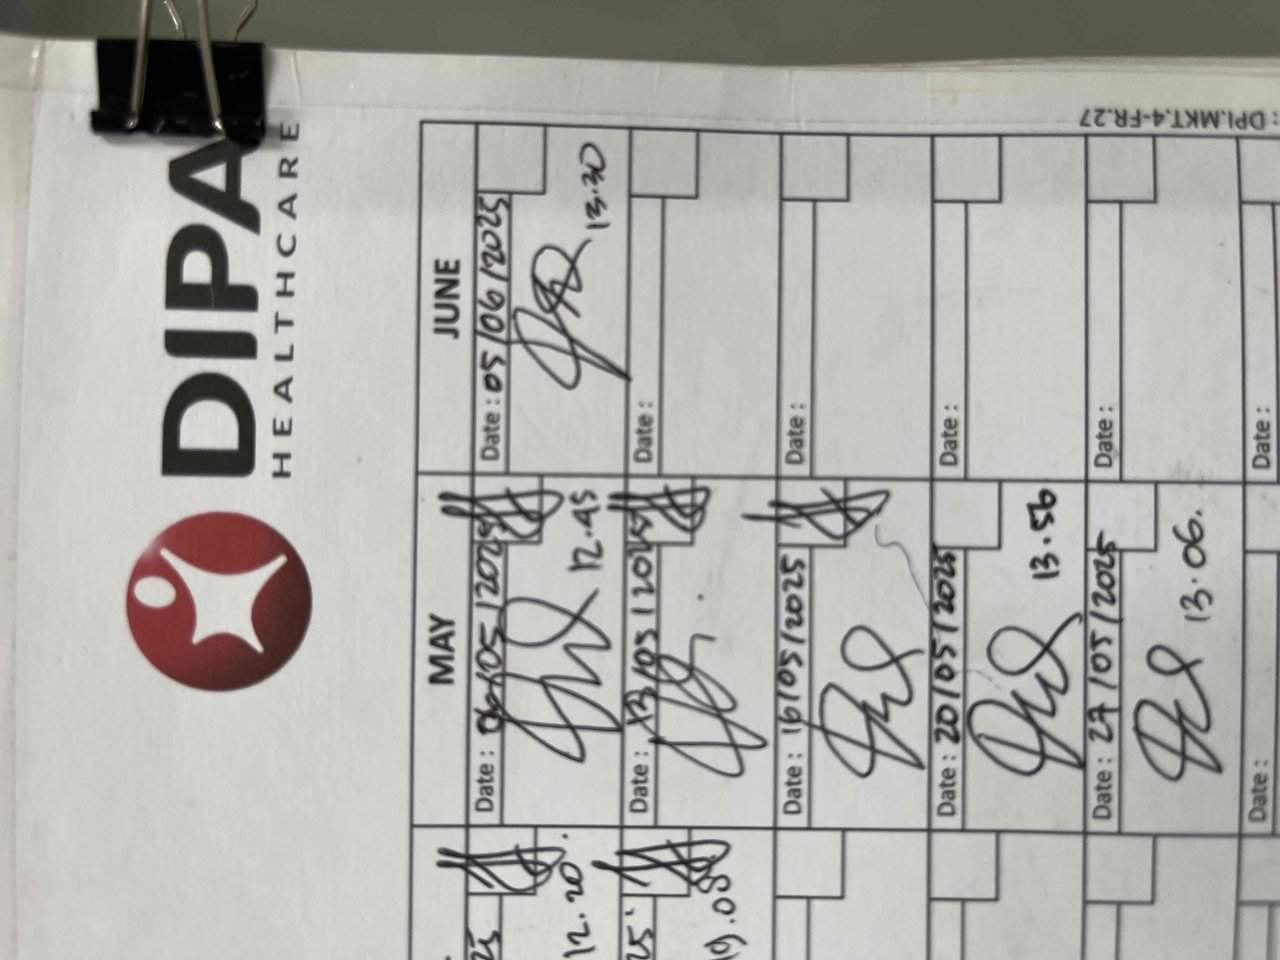 DIPA
HEALTHCARE
: DPI.MKT.4-FR.27
MAY
JUNE
Date : 06/05/2025
12.45
Date : 05/06/2025
13.30
Date : 13/05/2025
Date :
Date : 16/05/2025
Date :
Date : 20/05/2025
13.56
Date :
Date : 27/05/2025
13.06.
Date :
Date :
Date :
25
12.20.
25
19.05